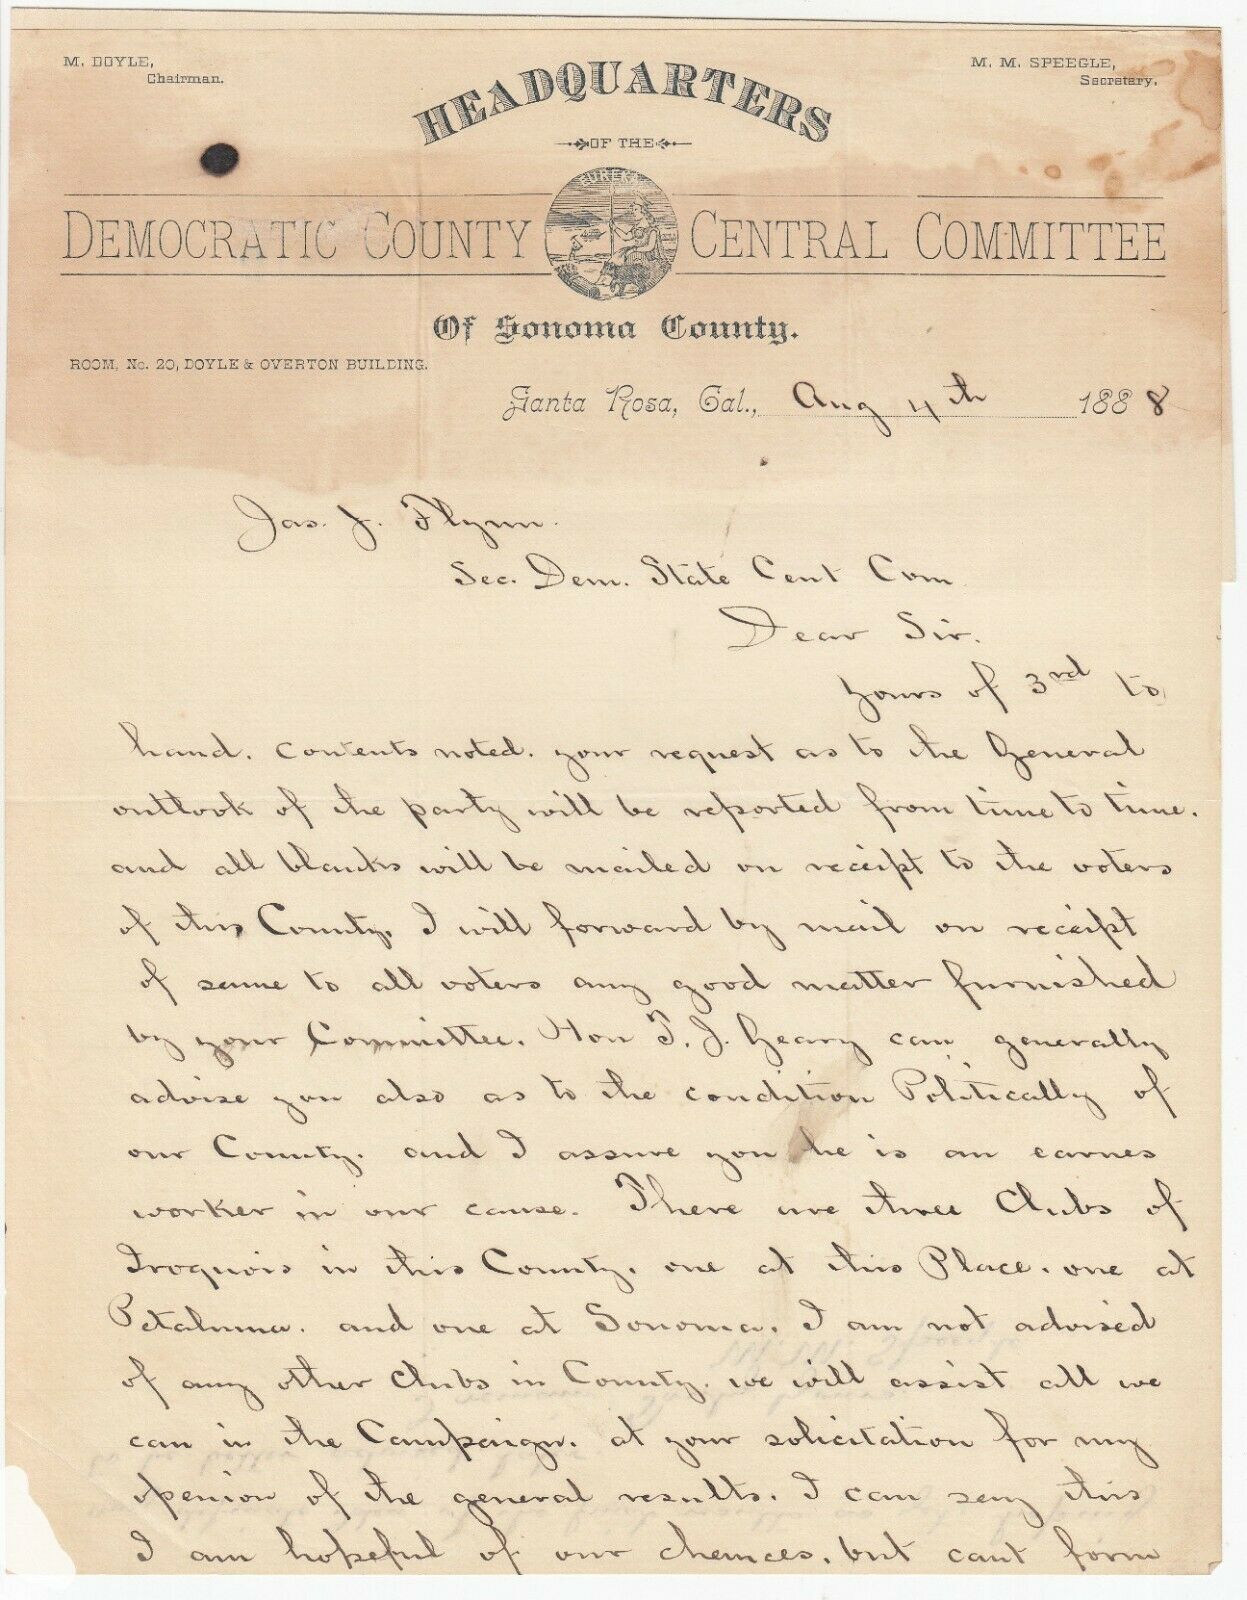 M. DOYLE,
Chairman.
M. M. SPEEGLE,
Secretary.
HEADQUARTERS
OF THE
EUREKA
DEMOCRATIC COUNTY CENTRAL COMMITTEE
Of Sonoma County.
ROOM, No. 20, DOYLE & OVERTON BUILDING.
Santa Rosa, Cal., Aug 4th 1888
Jas. J. Flynn.
Sec. Dem. State Cent Com
Dear Sir.
yours of 3rd to
hand. contents noted. your request as to the General
outlook of the party will be reported from time to time.
and all blanks will be mailed on receipt to the voters
of this County. I will forward by mail on receipt
of same to all voters any good matter furnished
by your Committee. Hon T. J. Geary can generally
advise you also as to the condition Politically of
our County. and I assure you he is an earnes
worker in our cause. There are three Clubs of
Iroquois in this County. one at this Place. one at
Petaluma. and one at Sonoma. I am not advised
of any other Clubs in County. we will assist all we
can in the Campaign. at your solicitation for my
openion of the general results. I can say this
I am hopeful of our chances. but cant form